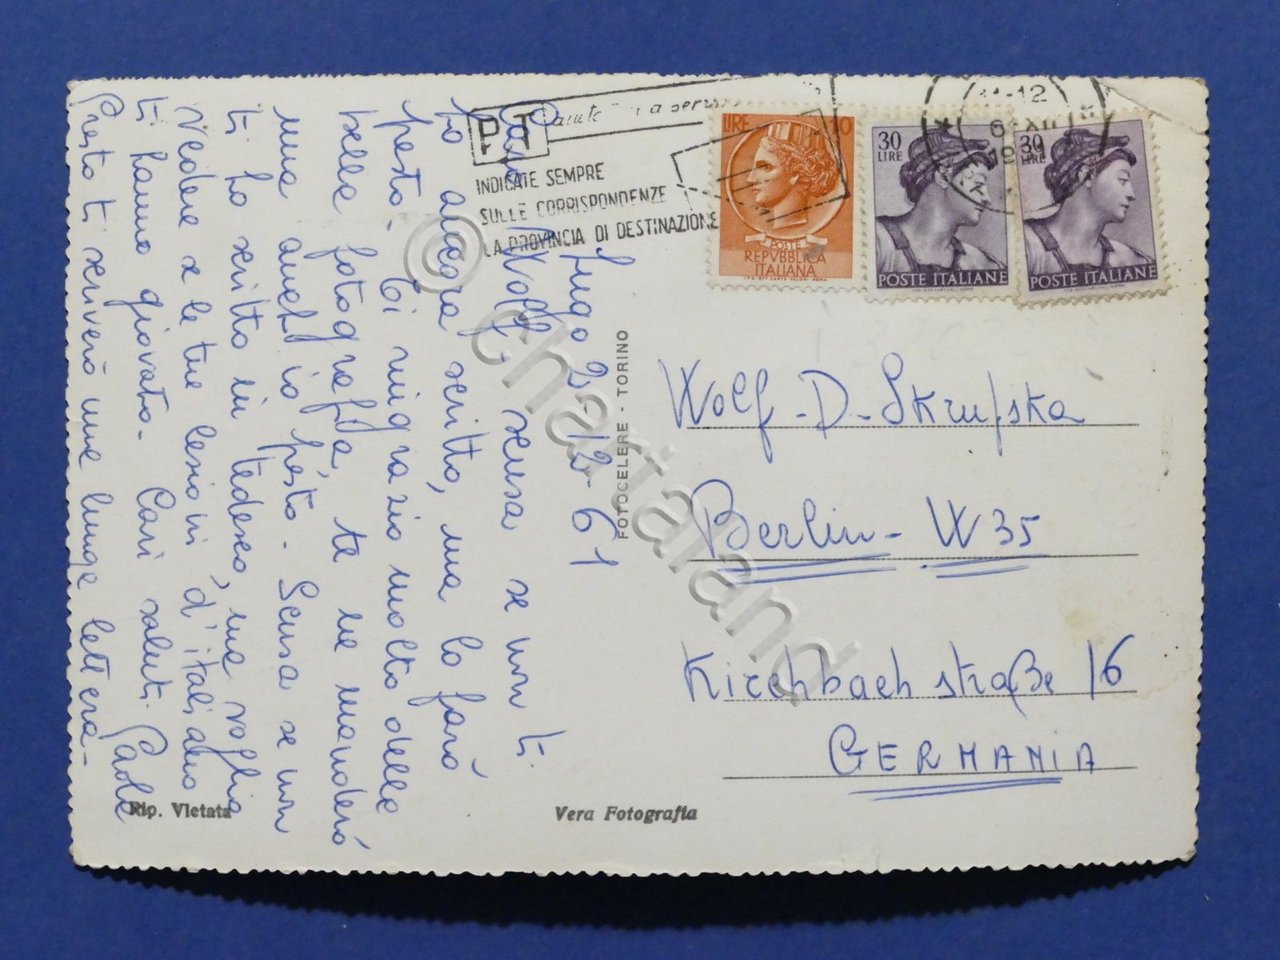 PT
aiute
INDICATE SEMPRE
SULLE CORRISPONDENZE
LA PROVINCIA DI DESTINAZIONE
LIRE
POSTE
REPVBBLICA
ITALIANA
30
LIRE
POSTE ITALIANE
30
LIRE
POSTE ITALIANE
-12
Lugo 2-12-61
Caro Wolf, scusa se non ti
ho ancora scritto, ma lo farò
presto. Ti ringrazio molto della
bella fotografia, te ne manderò
una anch'io presto. Scusa se non
ti ho scritto in tedesco, ma voglio
vedere se le tue lezioni d'italiano
ti hanno giovato. Cari saluti Paola
Presto ti scriverò una lunga lettera-
FOTOCELERE - TORINO
Wolf-D-Skrupska
Berlin-W35
Kirchbachstraße 16
GERMANIA
Rip. Vietata
Vera Fotografia
© chartaland